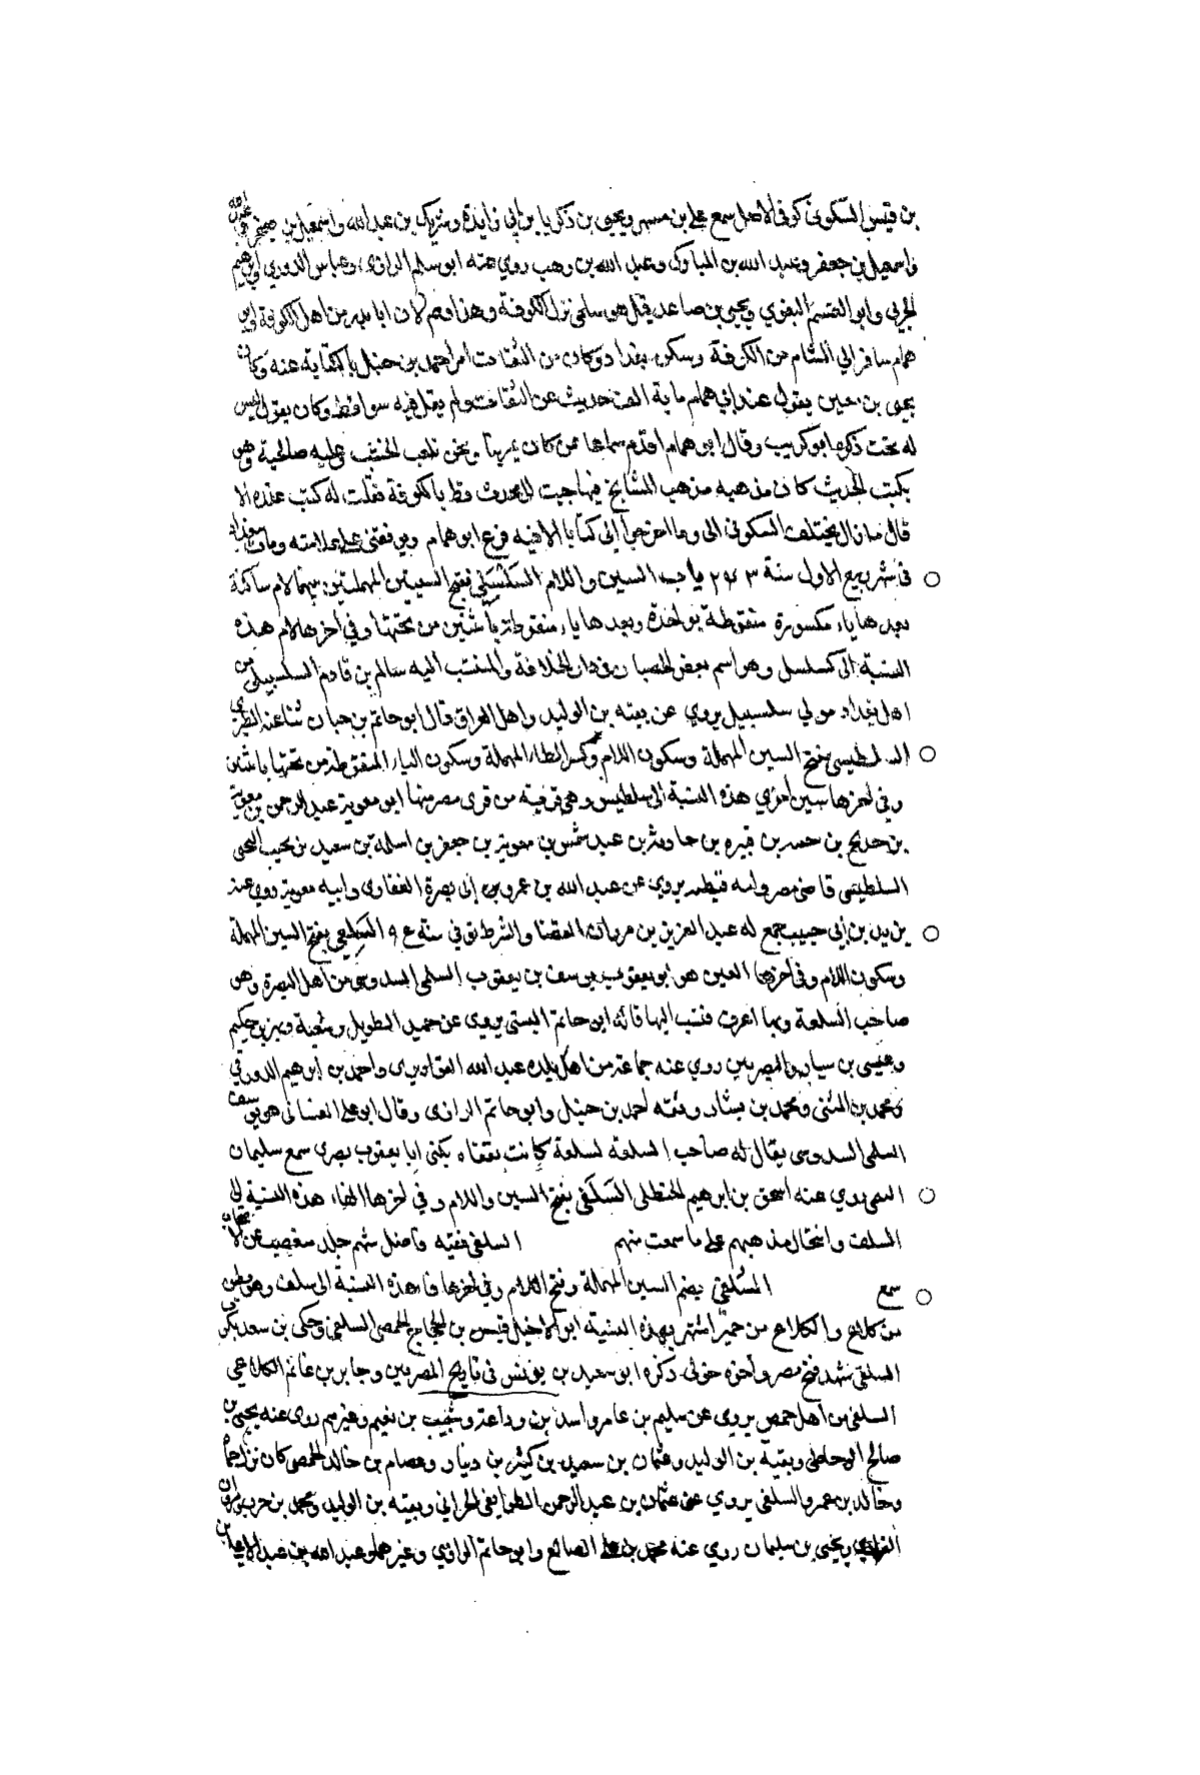 بن قيس السكوني كوفي الاصل سمع علي بن مسهر ويحيى بن زكريا بن ابي زايدة وشريك بن عبد الله واسمعيل بن
واسمعيل بن جعفر وعبد الله بن المبارك وعبد الله بن وهب روي عنه ابو حاتم الرازي وعباس الدوري وابرهيم
الحربي وابو القسم البغوي ويحيى بن صاعد قيل هو سلمى نزل الكوفة وهذا وهم لان ابا بدر من اهل الكوفة وابو
همام سافر الي الشام من الكوفة وسكن بغداد وكان من الثقات امر احمد بن حنبل بالكتابة عنه وكان
يحيى بن معين يقول عند ابي همام ماية الف حديث عن الثقات ولم يقل فيه سوا قط وكان يقول ليس
له بخت ذكره ابو كريب وقال ابو همام اقدم سماعا من كان يمر بنا ونحن نلعب عليه صالحية وهو
يكتب الحديث كان مذهبه مذهب المشايخ قط بالكوفة فقلت له كتب عنده الا
قال ما زال يختلف السكوني الى وما اخرج الي كتابا الا فيه فرغ ابو همام علامته ومات ببغداد
في شهر ربيع الاول سنة ٢٤٣ باب السين واللام السلسبيلي بفتح السينين المهملتين بينهما لام ساكنة
بعدها باء مكسورة منقوطة بواحدة وبعدها ياء منقوطة باثنتين من تحتها وفي اخرها لام هذه
النسبة الى سلسبيل وهو اسم بعض الخصيان في دار الخلافة والمنتسب اليه سالم بن قادم السلسبيلي من
اهل بغداد مولي سلسبيل يروي عن بقية بن الوليد واهل العراق قال ابو حاتم بن حبان ثنا عنه الطبري
السلطيسي بفتح السين المهملة وسكون اللام وكسر الطاء المهملة وسكون الياء المنقوطة من تحتها باثنتين
وفي اخرها سين اخري هذه النسبة الى سلطيس وهي قرية من قرى مصر منها ابو معوية عبد الرحمن بن معوية
بن حديج بن بن قتيره بن حارثة بن عبد شمس بن معوية بن جعفر بن اسامة بن سعد بن تجيب التجيبى
السلطيسي قاضي مصر يروي عن عبد الله بن عمرو بن ابي بصرة الغفاري وابيه معوية روي عنه
يزيد بن ابي حبيب جمع له عبد العزيز بن مروان القضا والشرط توفي في سنة السلعي بفتح السين المهملة
وسكون اللام وفي اخرها العين هو ابو يعقوب يوسف بن يعقوب السلمي السدوسي من اهل البصرة وهو
صاحب السلعة وبها اعرف فنسب اليها قاله ابو حاتم البستي يروي عن حميد الطويل وشعبة وبهز بن حكيم
وعيسى بن سيار والبصريين روي عنه جماعة من اهل بلده عبد الله القواريري واحمد بن ابرهيم الدورقي
ومحمد بن المثنى ومحمد بن بشار وثقه احمد بن حنبل وابو حاتم الرازي وقال ابو علي الغساني هو يوسف
السلمي السدوسي يقال له صاحب السلعة لسلعة كانت بقفاه يكنى ابا يعقوب بصري سمع سليمان
التيمي روي عنه اسحق بن ابرهيم الحنظلي السلفي بفتح السين واللام وفي اخرها الفاء هذه النسبة الي
السلف وانتحال مذهبهم علي ما سمعت منهم السلفي فقيه فاضل شهم جلد
سمع السلفي بضم السين المهملة وفتح اللام وفي اخرها فاء هذه النسبة الى سلف وهو بطن
من كلاع والكلاع من حمير اشتهر بهذه النسبة ابو الاخيل قيس بن الحجاج الحمصي السلفي وحكى بن سعد
السلفي شهد فتح مصر واخوه خولي ذكره ابو سعيد بن يونس في تاريخ المصريين وجابر بن غانم الكلاعي
السلفي من اهل حمص يروي عن سليم بن عامر واسد بن وداعة وشبيب بن نعيم وغيرهم روى عنه يحيى بن
صالح الوحاظي وبقية بن الوليد وعثمان بن سعيد بن كثير بن دينار وعصام بن خالد الحمصي كان
وخالد بن عمرو السلفي يروي عن عثمان بن عبد الرحمن الطرايفي الحراني وبقية بن الوليد ومحمد بن حرب ومروان
الفزاري ويحيى بن سليمان روي عنه محمد بن علي الصائغ وابو حاتم الرازي وغيرهما وعبد الله بن عبد